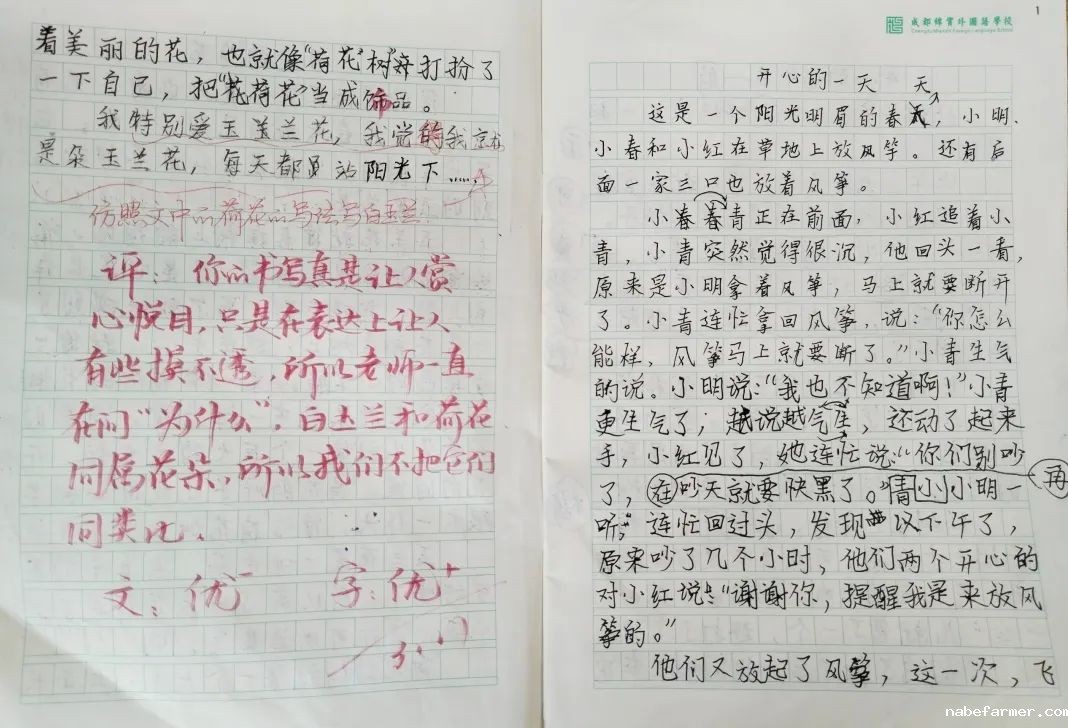 着美丽的花，也就像“荷花”树称打扮了
一下自己，把“花荷花”当成饰品。
我特别爱玉兰花，我觉的我京就
是朵玉兰花，每天都站阳光下……
仿照文中的荷花的写法写白玉兰
评：你的书写真是让人赏
心悦目，只是在表达上让人
有些摸不透，所以老师一直
在问“为什么”，白玉兰和荷花
同属花朵，所以我们不把它们
同类比．
文：优- 字：优+
3.17
1
成都绵实外国语学校
开心的一天 天
这是一个阳光明眉的春天，小明、
小春和小红在草地上放风筝。还有后
面一家三口也放着风筝。
小春春青正在前面，小红追着小
青，小青突然觉得很沉，他回头一看，
原来是小明拿着风筝，马上就要断开
了。小青连忙拿回风筝，说：“你怎么
能样，风筝马上就要断了。”小青生气
的说。小明说：“我也不知道啊！”小青
更生气了；越说越气生，还动了起来
手，小红见了，她连忙说：“你们别吵
了，在吵天就要快黑了。”青小小明一
再
听，连忙回过头，发现以下午了，
原来吵了几个小时，他们两个开心的
对小红说：“谢谢你，提醒我是来放风
筝的。”
他们又放起了风筝，这一次，飞
nabefarmer.com